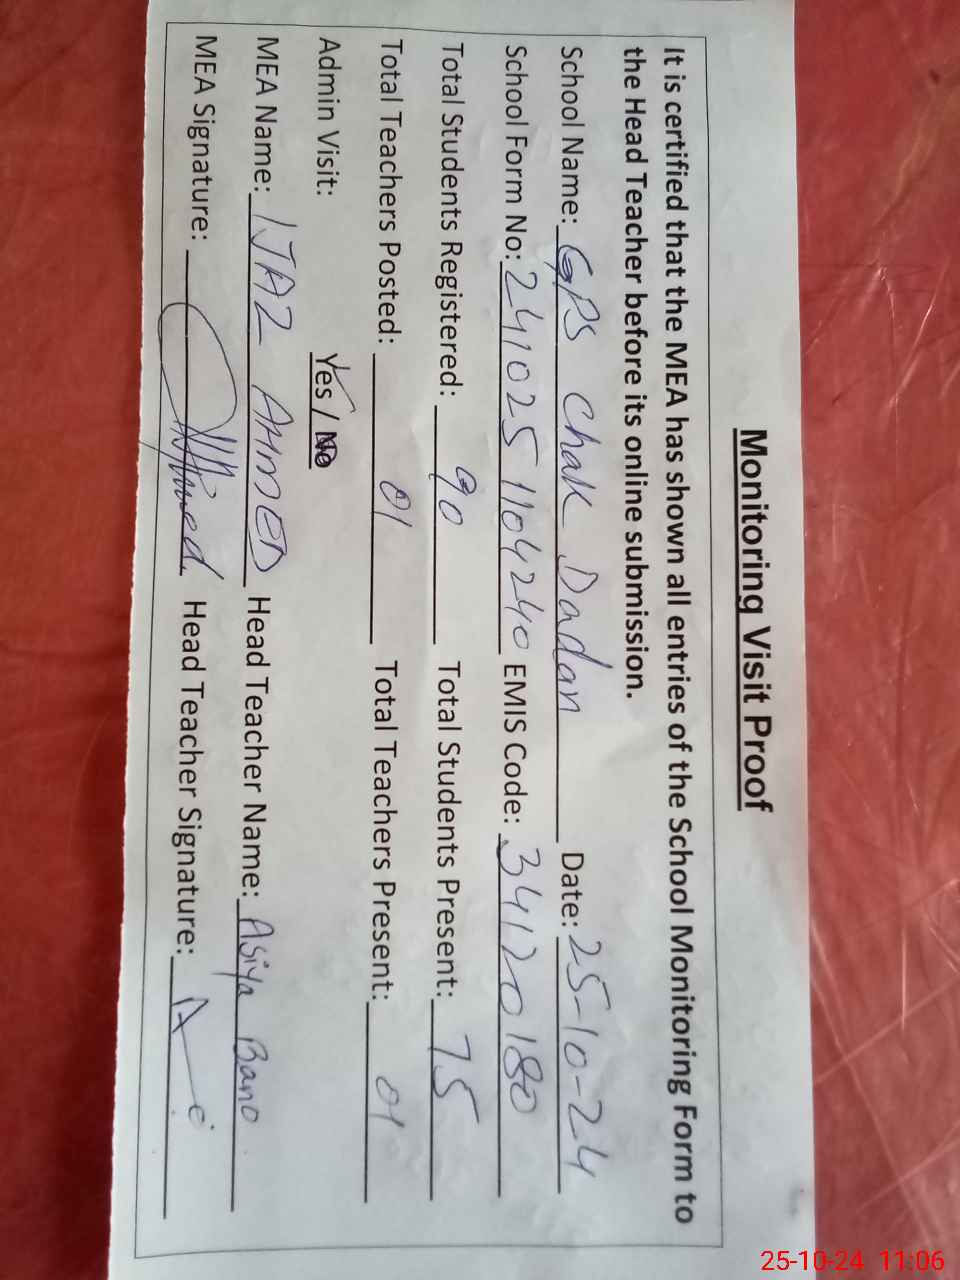 Monitoring Visit Proof
It is certified that the MEA has shown all entries of the School Monitoring Form to
the Head Teacher before its online submission.
School Name: GPS Chak Dadan Date: 25-10-24
School Form No: 2410251104240 EMIS Code: 34120180
Total Students Registered: 90 Total Students Present: 75
Total Teachers Posted: 01 Total Teachers Present: 01
Admin Visit: Yes / No
MEA Name: IJAZ AHMED Head Teacher Name: Asiya Bano
MEA Signature: Head Teacher Signature:
25-10-24 11:06